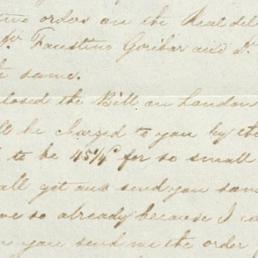 orders on the Real del
Faustino Goribar and Dn
same.
closed the Bill on London
be charged to you by the
to be 45¼ for so small
all got and send you some
so already because I
you send me the order